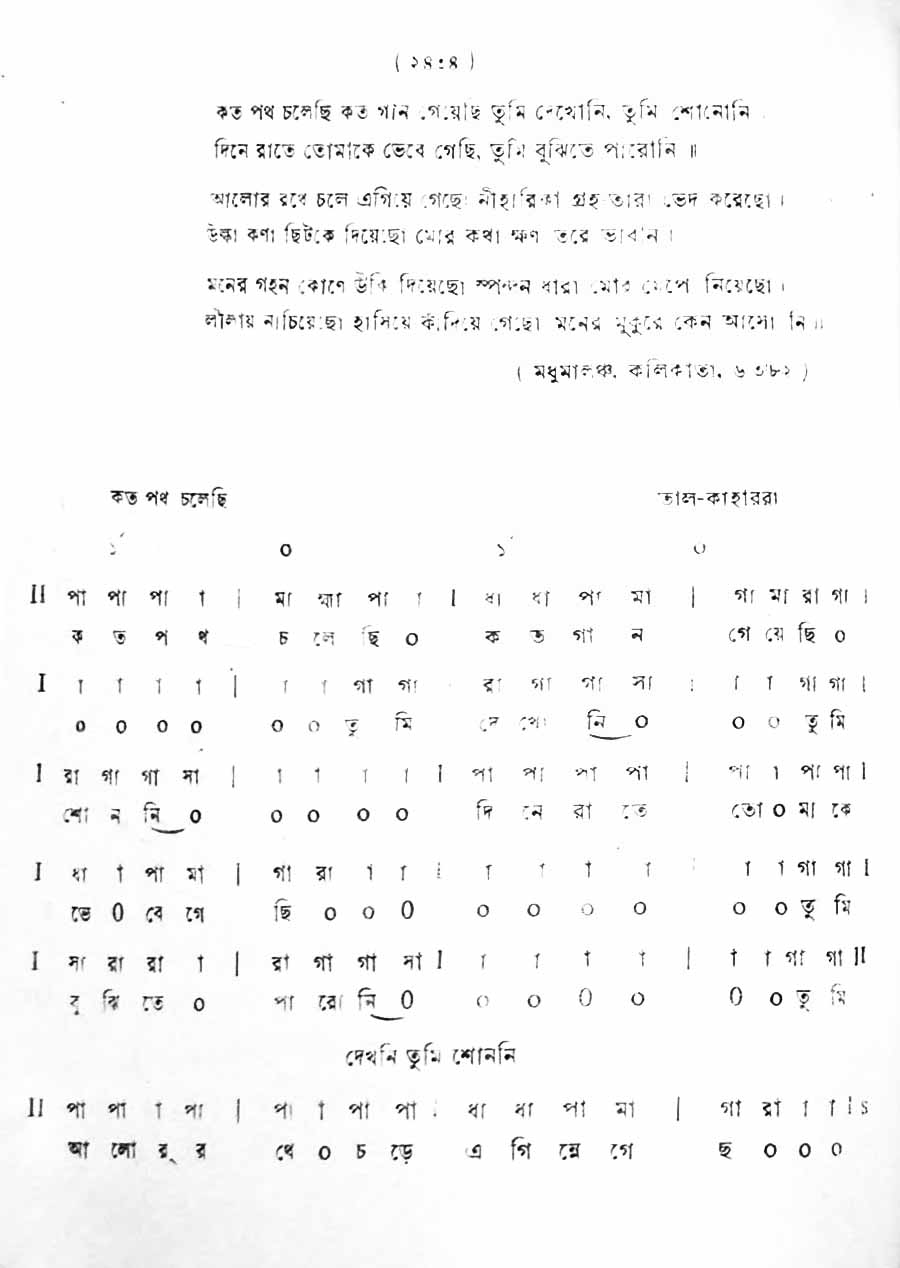 ( ২৪৭৪ )
কত পথ চলেছি কত গান গেয়েছি তুমি দেখোনি, তুমি শোনোনি
দিনে রাতে তোমাকে ভেবে গেছি, তুমি বুঝিতে পারোনি ॥
আলোর রথে চলে এগিয়ে গেছো নীহারিকা গ্রহ তারা ভেদ করেছো।
উল্কা কণা ছিটকে দিয়েছো মোর কথা ক্ষণ তরে ভাবনি।
মনের গহন কোণে উঁকি দিয়েছো স্পন্দন ধারা মোর মেপে নিয়েছো।
লীলায় নাচিয়েছো হাসিয়ে কাঁদিয়ে গেছো মনের মুকুরে কেন আসো নি॥
( মধুমালঞ্চ, কলিকাতা, ৬ ৩/৮২ )
কত পথ চলেছি তাল-কাহাররা
১´ ০ ১´ ০
II পা পা পা া | মা হ্মা পা া I ধা ধা পা মা | গা মা রা গা।
ক ত প থ চ লে ছি ০ ক ত গা ন গে য়ে ছি ০
I া া া া | া া গা গা রা গা গা সা : া া গা গা।
০ ০ ০ ০ ০ ০ তু মি দে খো নি ০ ০ ০ তু মি
I রা গা গা সা | া া া া I পা পা পা পা | পা া পা পা I
শো ন নি ০ ০ ০ ০ ০ দি নে রা তে তো ০ মা কে
I ধা া পা মা | গা রা া া া া া া া া গা গা I
ভে ০ বে গে ছি ০ ০ ০ ০ ০ ০ ০ ০ ০ তু মি
I সা রা রা া | রা গা গা সা I া া া া | া া গা গা II
বু ঝি তে ০ পা রো নি ০ ০ ০ ০ ০ ০ ০ তু মি
দেখনি তুমি শোননি
II পা পা া পা | পা া পা পা ধা ধা পা মা | গা রা া া I s
আ লো র্ র থে ০ চ ড়ে এ গি য়ে গে ছ ০ ০ ০